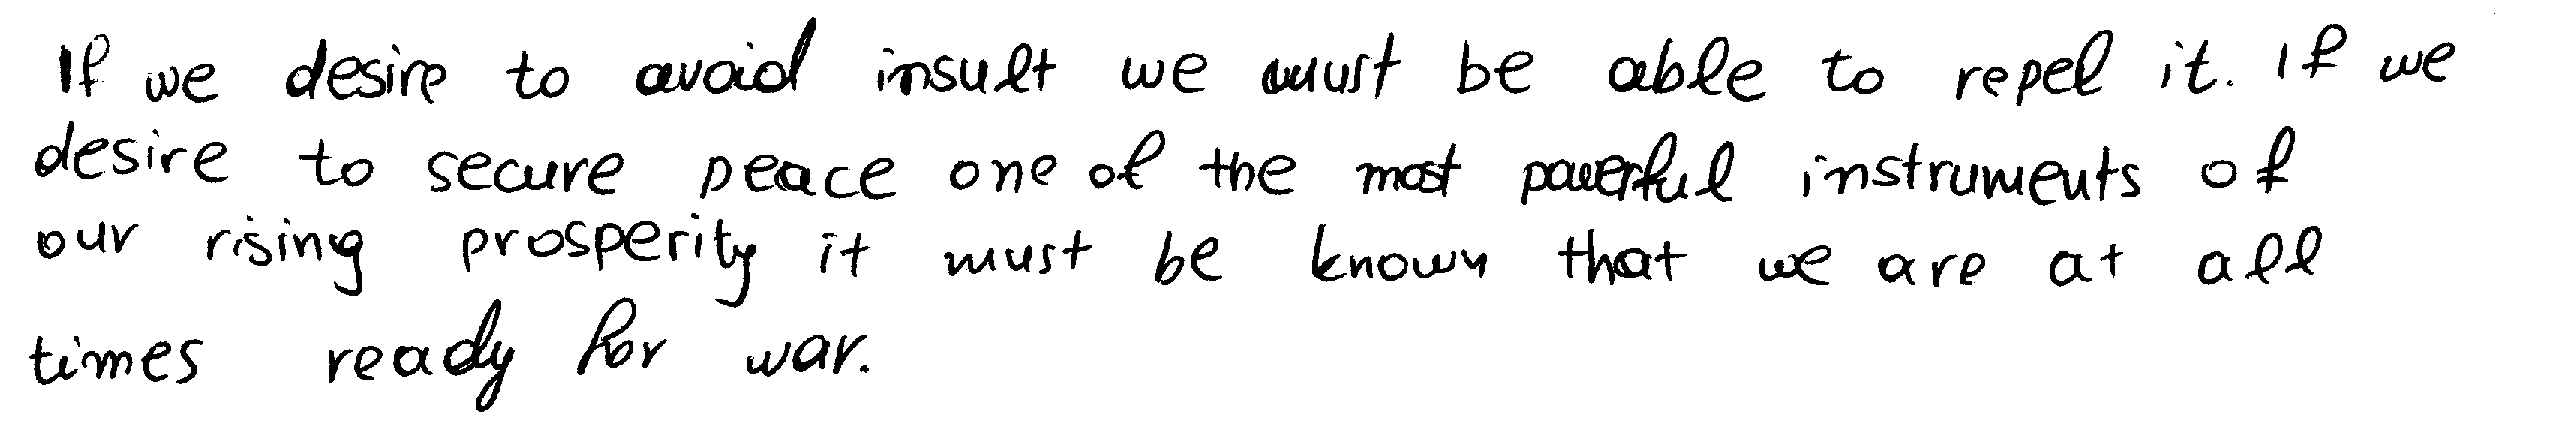 If we desire to avoid insult we must be able to repel it. If we
desire to secure peace one of the most powerful instruments of
our rising prosperity it must be known that we are at all
times ready for war.